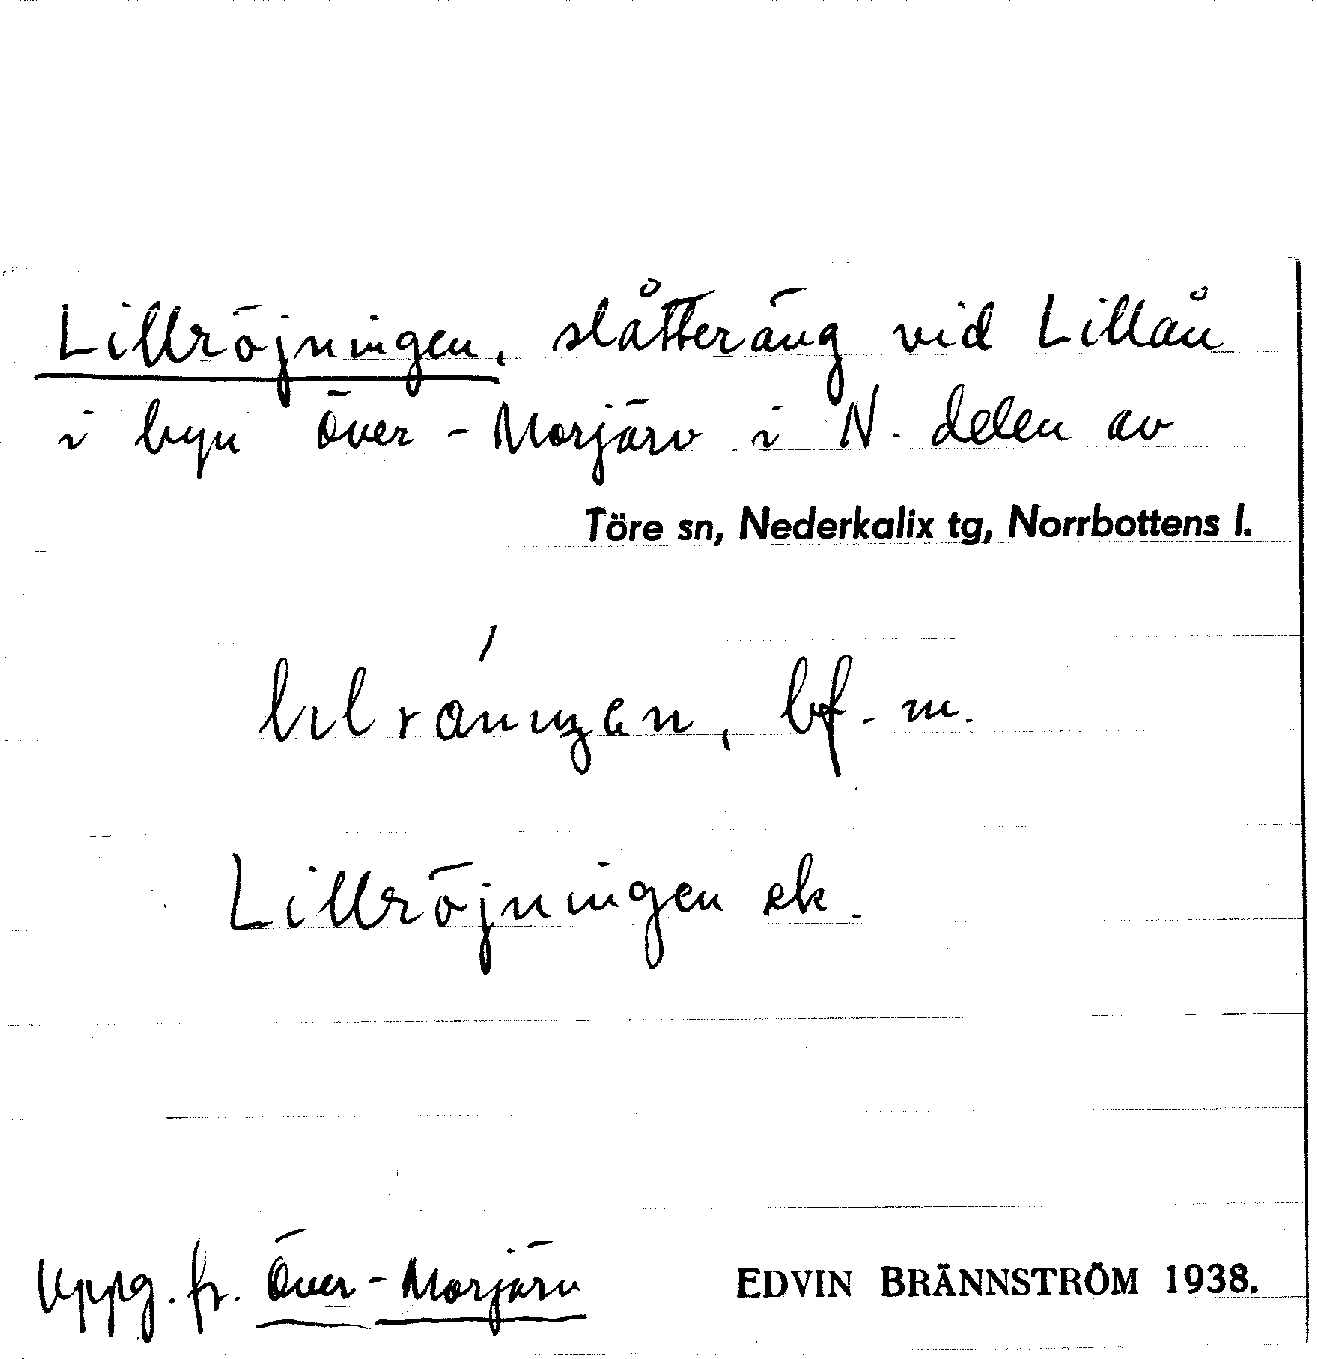 Lillröjningen, slåtteräng vid Lillån
i byn Över-Morjärv i N. delen av
Töre sn, Nederkalix tg, Norrbottens l.
bf. m.
Lillröjningen ek.
Uppg. fr. Över-Morjärv
EDVIN BRÄNNSTRÖM 1938.